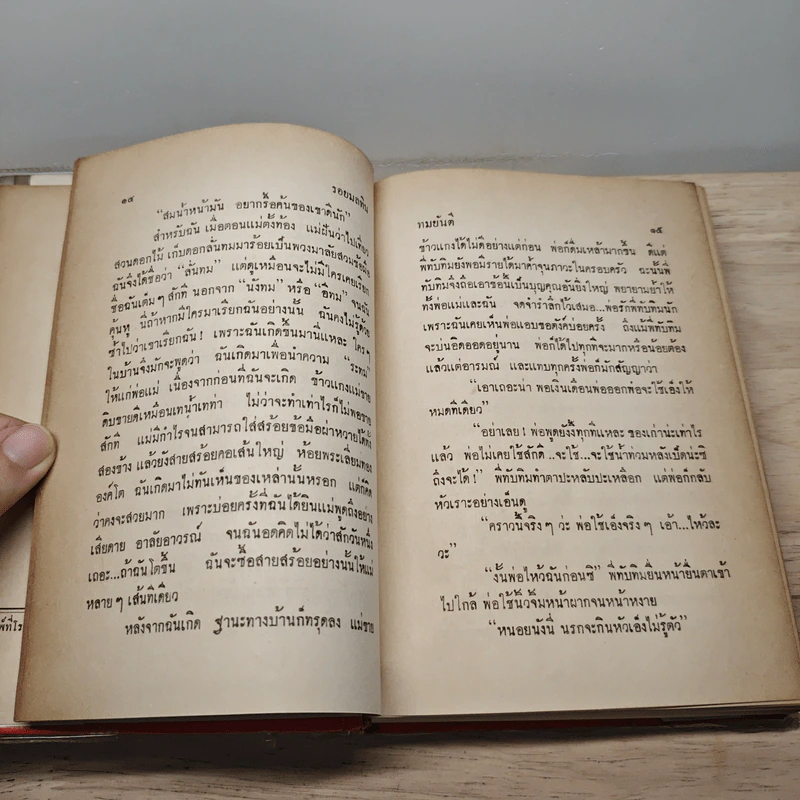 ๑๔ รอยมลทิน
"สมน้ำหน้ามัน อยากรื้อค้นของเขาดีนัก"
สำหรับฉัน เมื่อตอนแม่ตั้งท้อง แม่ฝันว่าไปเที่ยว
สวนดอกไม้ เก็บดอกลั่นทมมาร้อยเป็นพวงมาลัยสวมข้อมือ
ฉันจึงได้ชื่อว่า "ลั่นทม" แต่ดูเหมือนจะไม่มีใครเคยเรียก
ชื่อฉันเต็มๆ สักที นอกจาก "นังทม" หรือ "อีทม" จนฉัน
คุ้นหู นี่ถ้าหากมีใครมาเรียกฉันอย่างนั้น ฉันคงไม่รู้ด้วย
ซ้ำไปว่าเขาเรียกฉัน! เพราะฉันเกิดขึ้นมานี่แหละ ใครๆ
ในบ้านจึงมักจะพูดว่า ฉันเกิดมาเพื่อนำความ "ระทม"
ให้แก่พ่อแม่ เนื่องจากก่อนที่ฉันจะเกิด ข้าวแกงแม่ขาย
ดิบขายดีเหมือนเทน้ำเทท่า ไม่ว่าจะทำเท่าไรก็ไม่พอขาย
สักที แม่มีกำไรจนสามารถใส่สร้อยข้อมือฝาหวายได้ตั้ง
สองข้าง แล้วยังสายสร้อยคอเส้นใหญ่ ห้อยพระเลี่ยมทอง
องค์โต ฉันเกิดมาไม่ทันเห็นของเหล่านั้นหรอก แต่ก็คิด
ว่าคงจะสวยมาก เพราะบ่อยครั้งที่ฉันได้ยินแม่พูดถึงอย่าง
เสียดาย อาลัยอาวรณ์ จนฉันอดคิดไม่ได้ว่าสักวันหนึ่ง
เถอะ...ถ้าฉันโตขึ้น ฉันจะซื้อสายสร้อยอย่างนั้นให้แม่
หลายๆ เส้นทีเดียว
หลังจากฉันเกิด ฐานะทางบ้านก็ทรุดลง แม่ขาย
ทมยันตี ๑๕
ข้าวแกงได้ไม่ดีอย่างแต่ก่อน พ่อก็ดื่มเหล้ามากขึ้น ดีแต่
พี่ทับทิมยังพอมีรายได้มาค้ำจุนภาวะในครอบครัว ฉะนั้นพี่
ทับทิมจึงถือเอาข้อนี้เป็นบุญคุณอันยิ่งใหญ่ พยายามย้ำให้
ทั้งพ่อแม่และฉัน จดจำรำลึกไว้เสมอ...พ่อรักพี่ทับทิมนัก
เพราะฉันเคยเห็นพ่อแอบขอตังค์บ่อยครั้ง ถึงแม้พี่ทับทิม
จะบ่นอิดออดอยู่นาน พ่อก็ได้ไปทุกทีจะมากหรือน้อยต้อง
แล้วแต่อารมณ์ และแทบทุกครั้งพ่อก็มักสัญญาว่า
"เอาเถอะน่า พอเงินเดือนพ่อออกพ่อจะใช้เอ็งให้
หมดทีเดียว"
"อย่าเลย! พ่อพูดยังงี้ทุกทีแหละ ของเก่าน่ะเท่าไร
แล้ว พ่อไม่เคยใช้สักที ..จะใช้...จะใช้น้ำท่วมหลังเป็ดน่ะซิ
ถึงจะได้!" พี่ทับทิมทำตาปะหลับปะเหลือก แต่พ่อก็กลับ
หัวเราะอย่างเอ็นดู
"คราวนี้จริงๆ ว่ะ พ่อใช้เอ็งจริงๆ เอ้า...ไหว้ละ
วะ"
"งั้นพ่อไหว้ฉันก่อนซิ" พี่ทับทิมยื่นหน้ายื่นตาเข้า
ไปใกล้ พ่อใช้นิ้วจิ้มหน้าผากจนหน้าหงาย
"หนอยนังนี่ นรกจะกินหัวเอ็งไม่รู้ตัว"